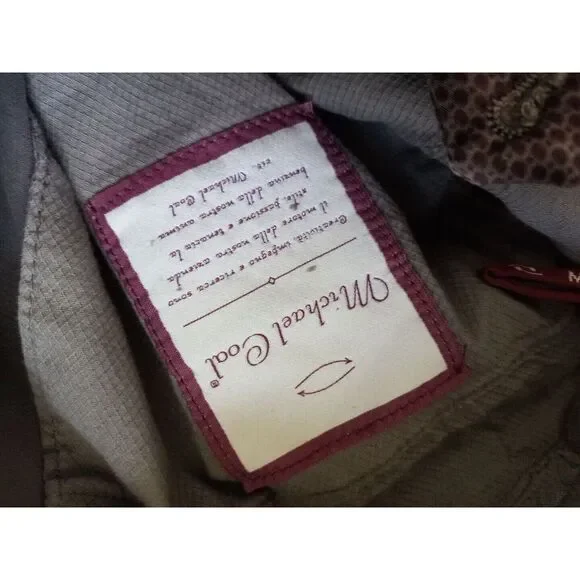 Michael Coal®
Creatività, impegno e ricerca sono
il motore della nostra azienda
stile, passione e tenacia la
benzina della nostra anima
cit. Michael Coal
M